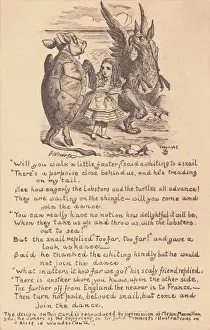 "Will you walk a little faster," said a whiting to a snail
"There's a porpoise close behind us, and he's treading
on my tail.
See how eagerly the lobsters and the turtles all advance!
They are waiting on the shingle – will you come and
join the dance.
"You can really have no notion how delightful it will be,
When they take us up and throw us, with the lobsters,
out to sea!"
But the snail replied "Too far, too far!" and gave a
look askance—
Said he thanked the whiting kindly but he would
not join the dance.
"What matters it how far we go?" his scaly friend replied.
"There is another shore, you know, upon the other side.
The further off from England the nearer is to France—
Then turn not pale, beloved snail, but come and
join the dance.
The designs on this Card is reproduced by permission of Messrs Macmillan
"Alice in Wonderland"